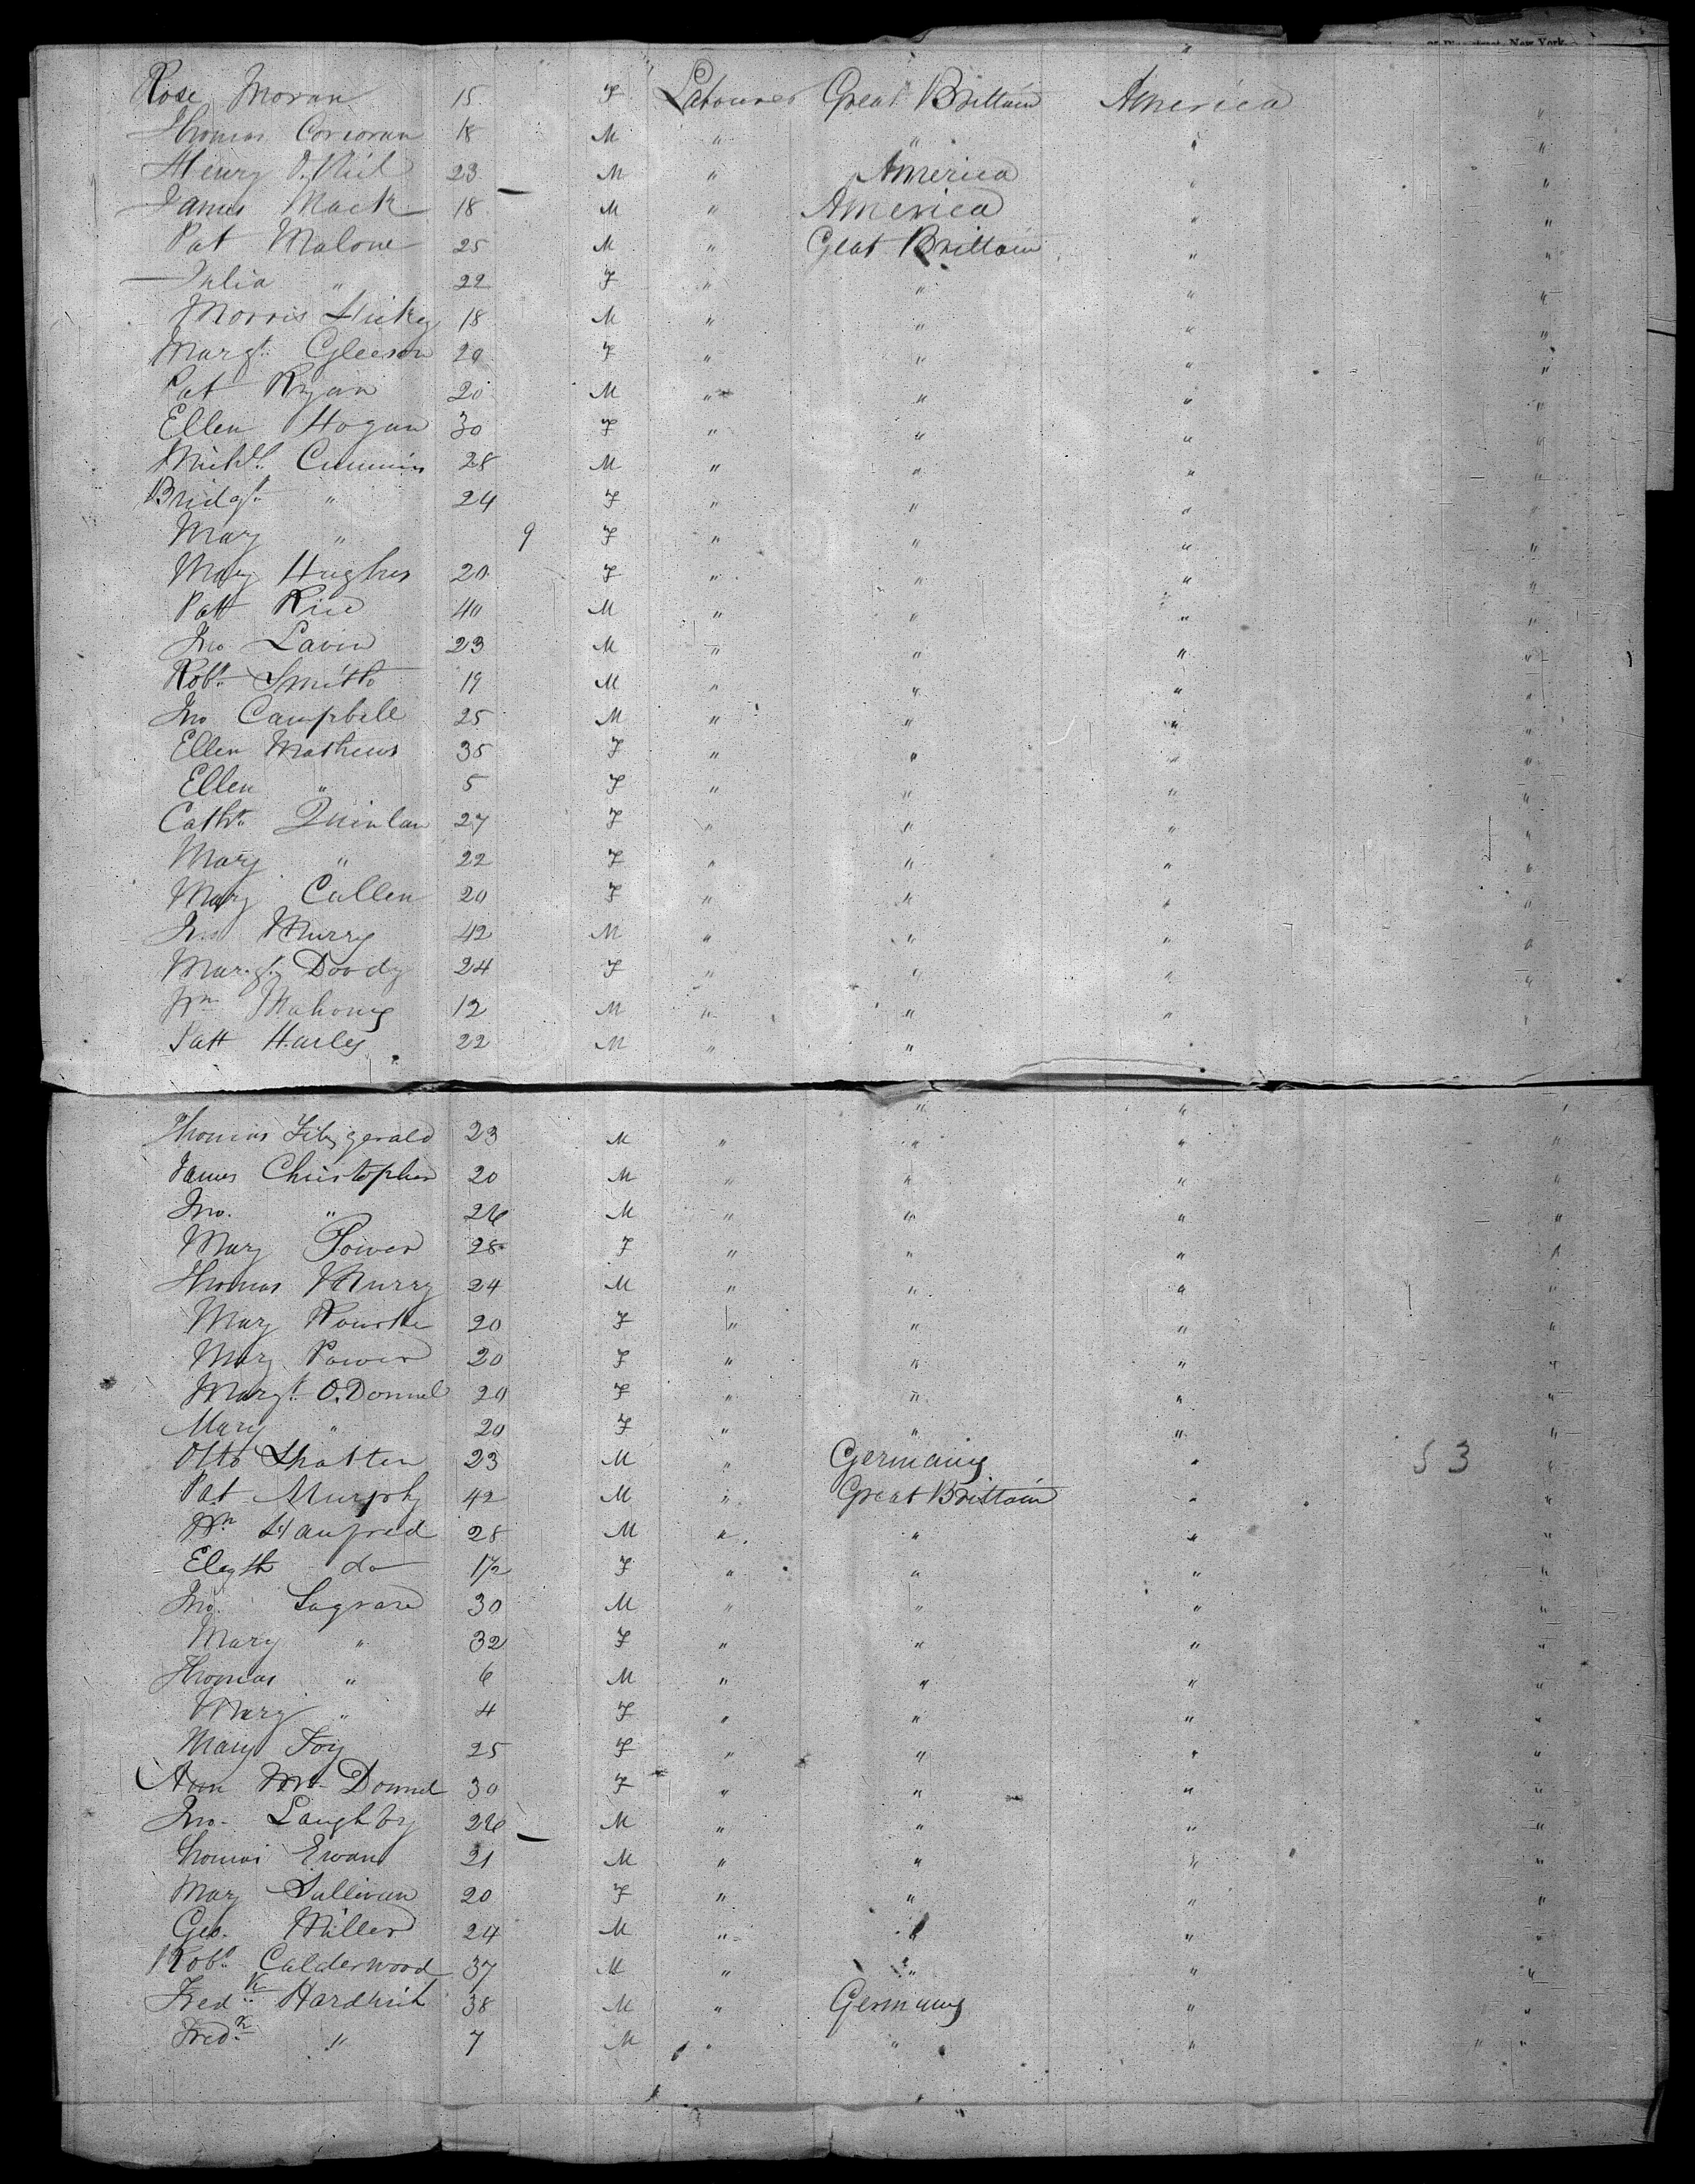 New York
Rose Moran 15 F Labourer Great Brittain America "
Thomas Corcoran 18 M " " " "
Henry O.Neil 23 M " America " "
James Mack 18 M " America " "
Pat Malone 25 M " Geat Brittain " "
Julia " 22 F " " " "
Morris Hickey 18 M " " " "
Margt. Gleeson 20 F " " " "
Pat Ryan 20 M " " " "
Ellen Hogan 30 F " " " "
Michl. Cummin 28 M " " " "
Bridgt. " 24 F " " " "
Mary " 9 F " " " "
Mary Hughes 20 F " " " "
Patt Rice 40 M " " " "
Jno Lavin 23 M " " " "
Robt. Smith 19 M " " " "
Jno Campbell 25 M " " " "
Ellen Mathews 35 F " " " "
Ellen " 5 F " " " "
Cathr. Quinlan 27 F " " " "
Mary " 22 F " " " "
Mary Cullen 20 F " " " "
Murry 42 M " " " "
Margt. Doody 24 F " " " "
Wm Mahony 12 M " " " "
Patt Harley 22 M " " " "
Thomas Fitzgerald 23 M " " " "
James Christopher 20 M " " " "
Jno. " 26 M " " " "
Mary Power 28 F " " " "
Thomas Murry 24 M " " " "
Mary Rourke 20 F " " " "
Mary Power 20 F " " " "
Margt. O.Donnel 20 F " " " "
Mary " 20 F " " " "
Otto 23 M " Germany " 53 "
Pat Murphy 42 M " Great Brittain " "
Wm Hanfred 28 M " " " "
do 1/2 F " " " "
Jno. 30 M " " " "
Mary " 32 F " " " "
Thomas " 6 M " " " "
Mary " 4 F " " " "
Mary Foy 25 F " " " "
Ann Mc Donnel 30 F " " " "
Jno. 26 M " " " "
Thomas Ewan 21 M " " " "
Mary Sullivan 20 F " " " "
Geo. Miller 24 M " " " "
Robt. Calderwood 37 M " " " "
Fredk. 38 M " Germany " "
Fredk. " 7 M " " " " "